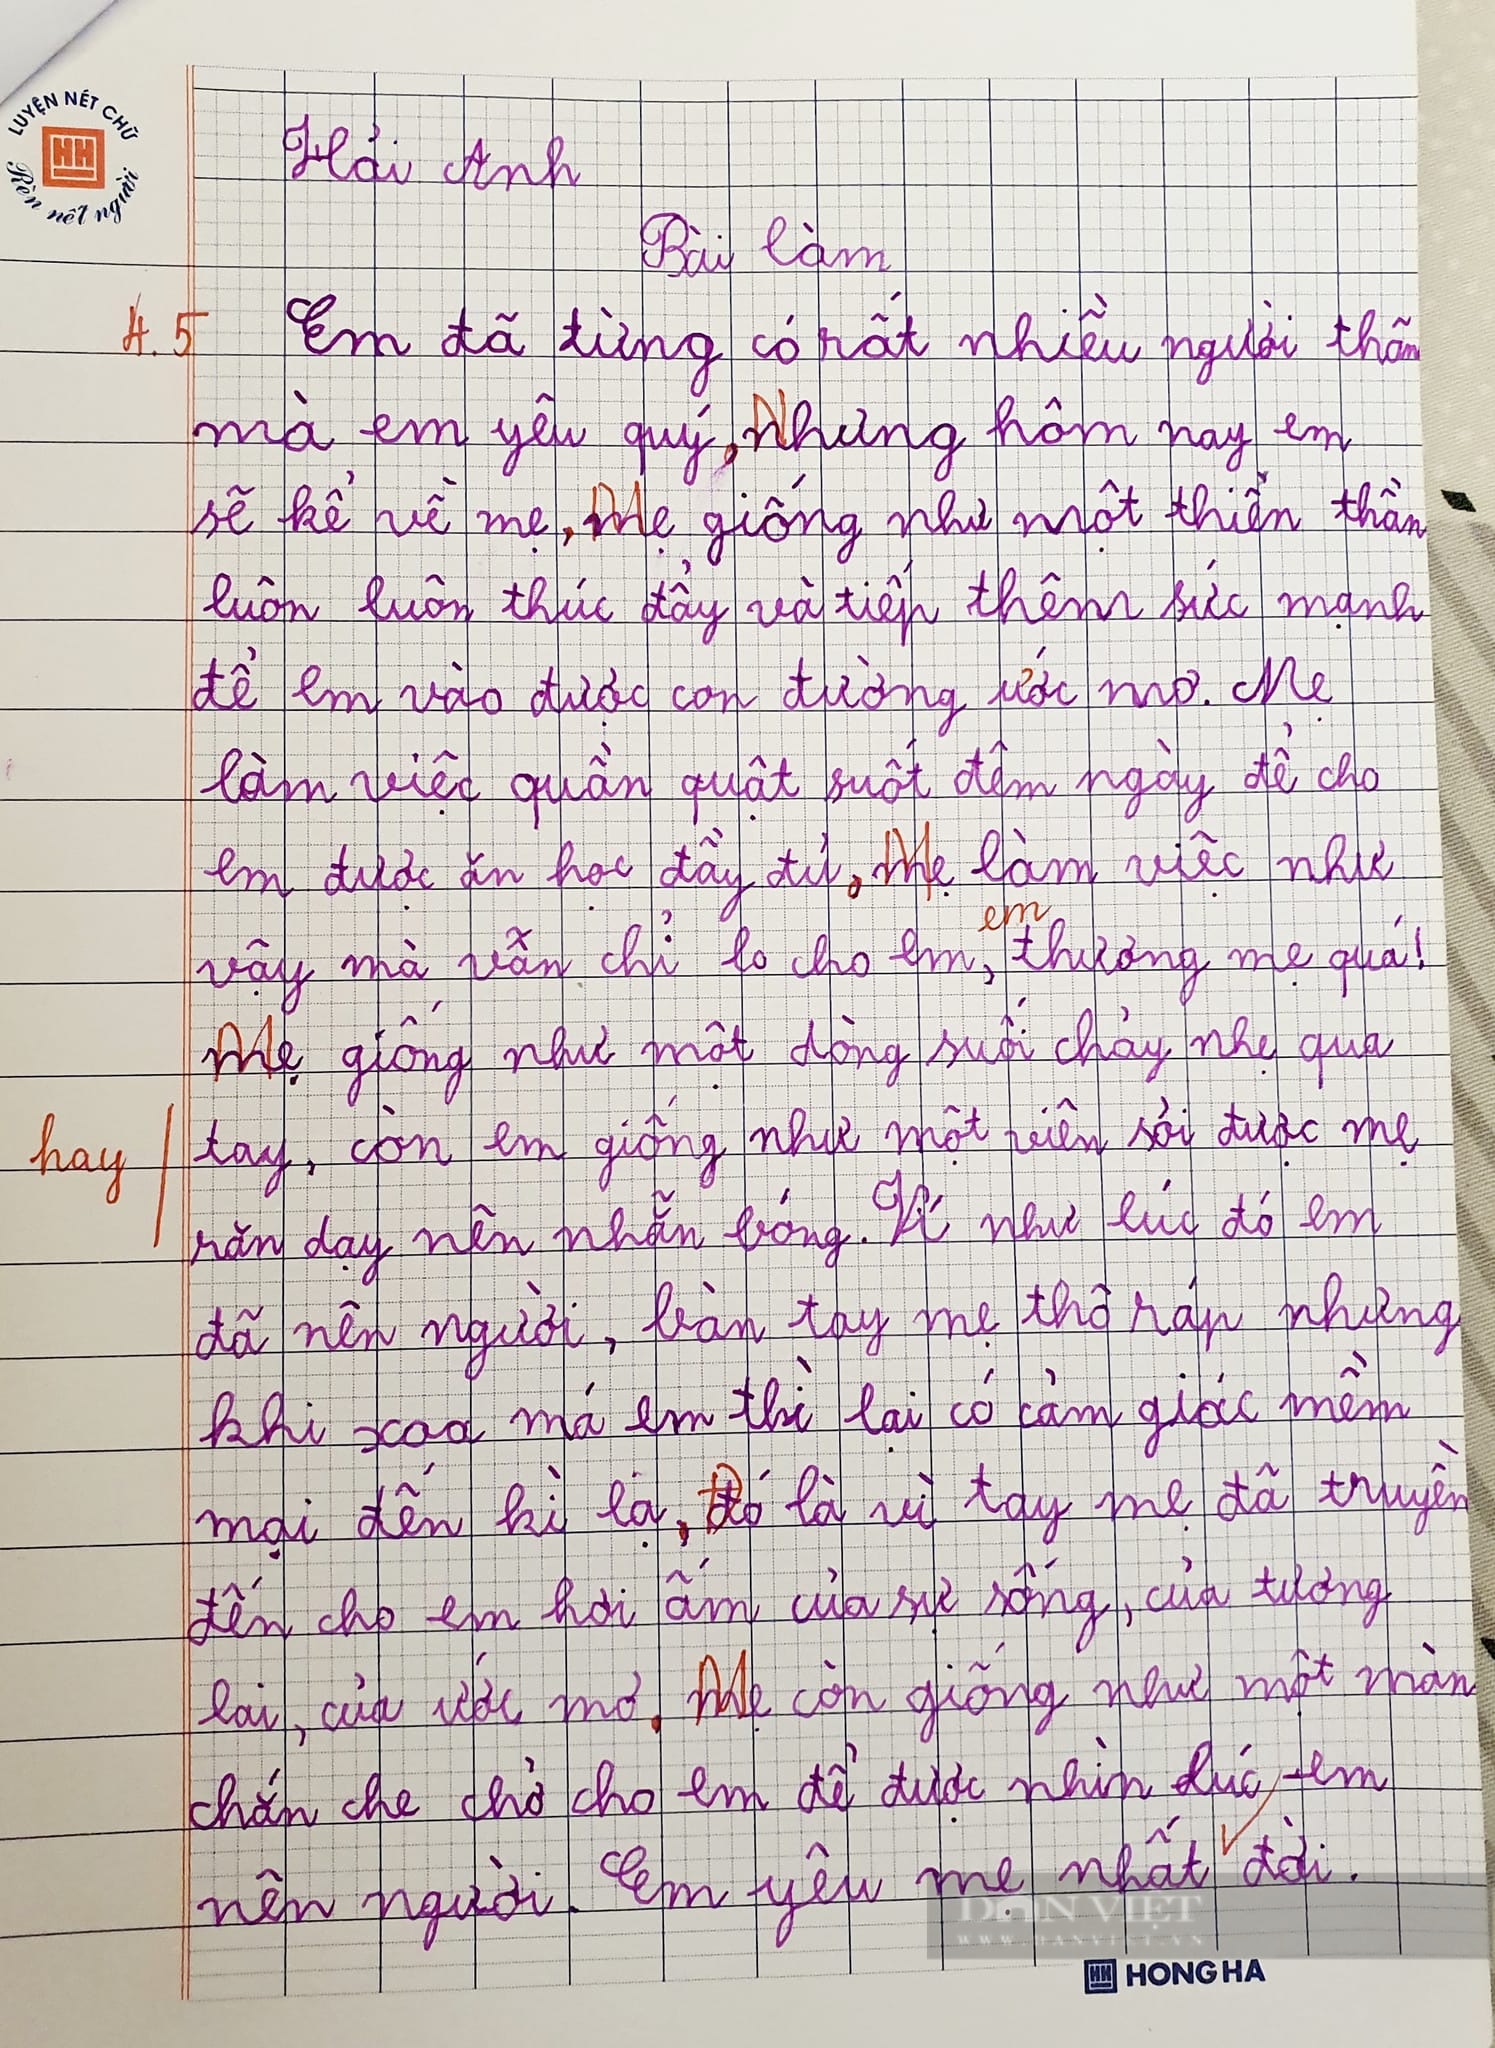 LUYỆN NÉT CHỮ
HH
Rèn nết người
Hải Anh
Bài làm
4.5 Em đã từng có rất nhiều người thân
mà em yêu quý, Nhưng hôm nay em
sẽ kể về mẹ, Mẹ giống như một thiền thần
luôn luôn thúc đẩy và tiếp thêm sức mạnh
để em vào được con đường ước mơ. Mẹ
làm việc quần quật suốt đêm ngày để cho
em được ăn học đầy đủ, Mẹ làm việc như
em
vậy mà vẫn chỉ lo cho em, thương mẹ quá!
Mẹ giống như một dòng suối chảy nhẹ qua
hay tay, còn em giống như một viên sỏi được mẹ
răn dạy nên nhẵn bóng. Ví như lúc đó em
đã nên người, bàn tay mẹ thô ráp nhưng
khi xoa má em thì lại có cảm giác mềm
mại đến kì lạ, Đó là vì tay mẹ đã truyền
đến cho em hơi ấm của sự sống, của tương
lai, của ước mơ. Mẹ còn giống như một màn
chắn che chở cho em để được nhìn lúc em
nên người. Em yêu mẹ nhất đời.
DÂN VIỆT
WWW.DANVIET.VN
HH HONG HA